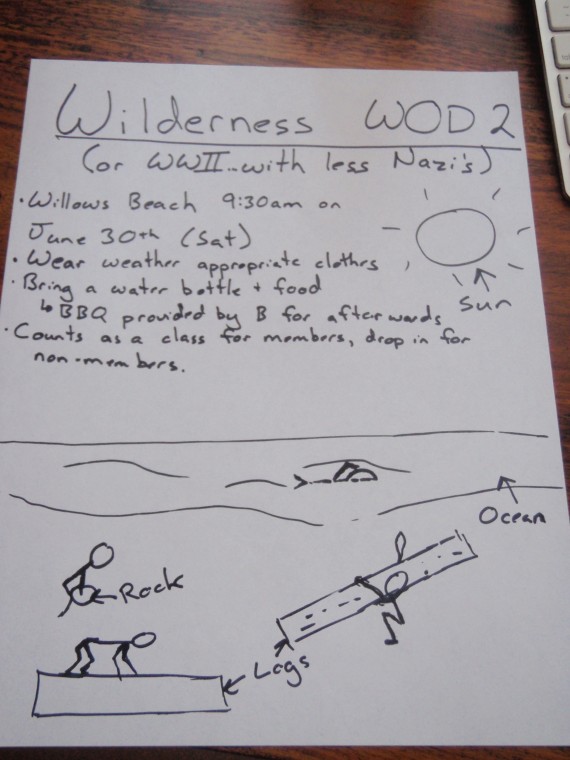 Wilderness WOD 2
(or WWII...with less Nazi's)
• Willows Beach 9:30am on
June 30th (Sat)
• Wear weather appropriate clothes
• Bring a water bottle + food
↳ BBQ provided by B for afterwards
• Counts as a class for members, drop in for
non-members.
Sun
Ocean
Rock
Logs